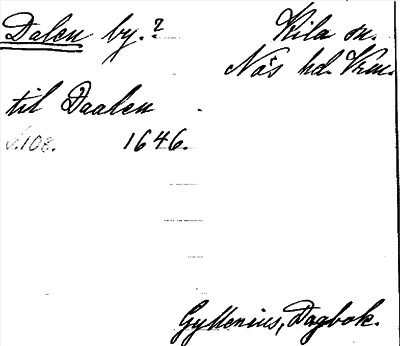 Dalen by.?
Kila sn.
Näs hd. Vrm.
til Daalen
s. 108. 1646.
Gyllenius, Dagbok.